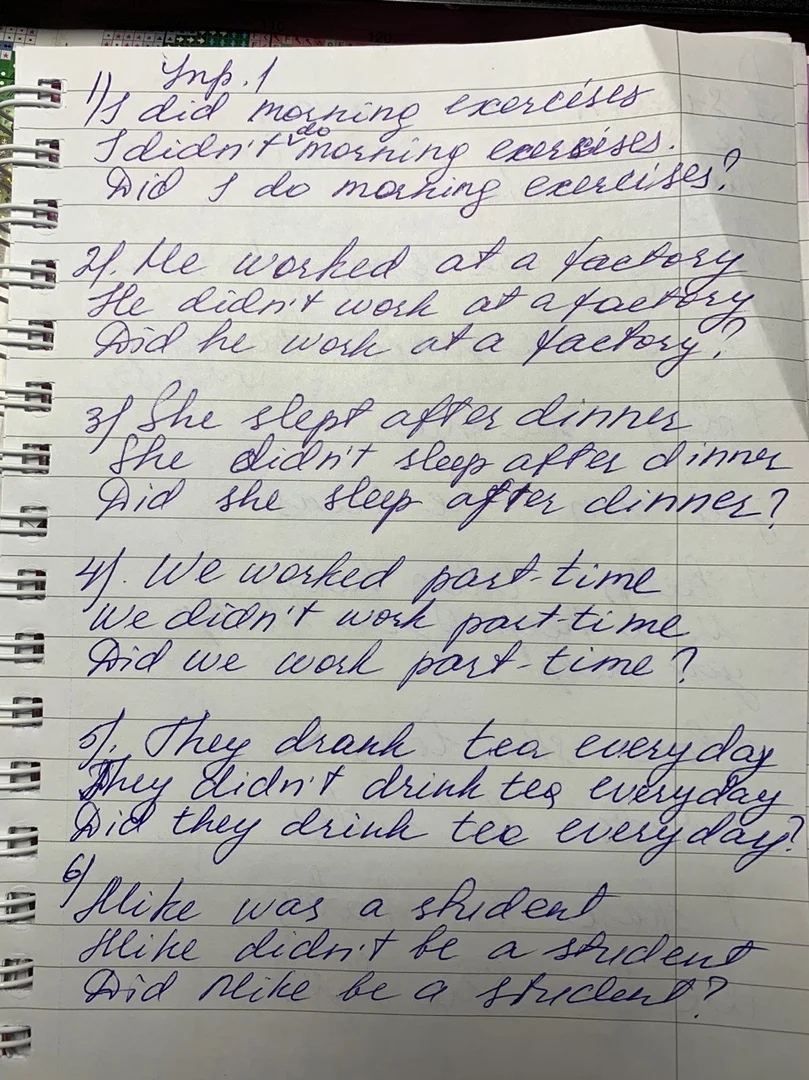 Упр. 1
1) I did morning exercises
I didn't do morning exercises.
Did I do morning exercises?
2). He worked at a factory
He didn't work at a factory
Did he work at a factory?
3) She slept after dinner
She didn't sleep after dinner
Did she sleep after dinner?
4). We worked part-time
We didn't work part-time
Did we work part-time?
5). They drank tea everyday
They didn't drink tea everyday
Did they drink tea everyday?
6)
Mike was a student
Mike didn't be a student
Did Mike be a student?